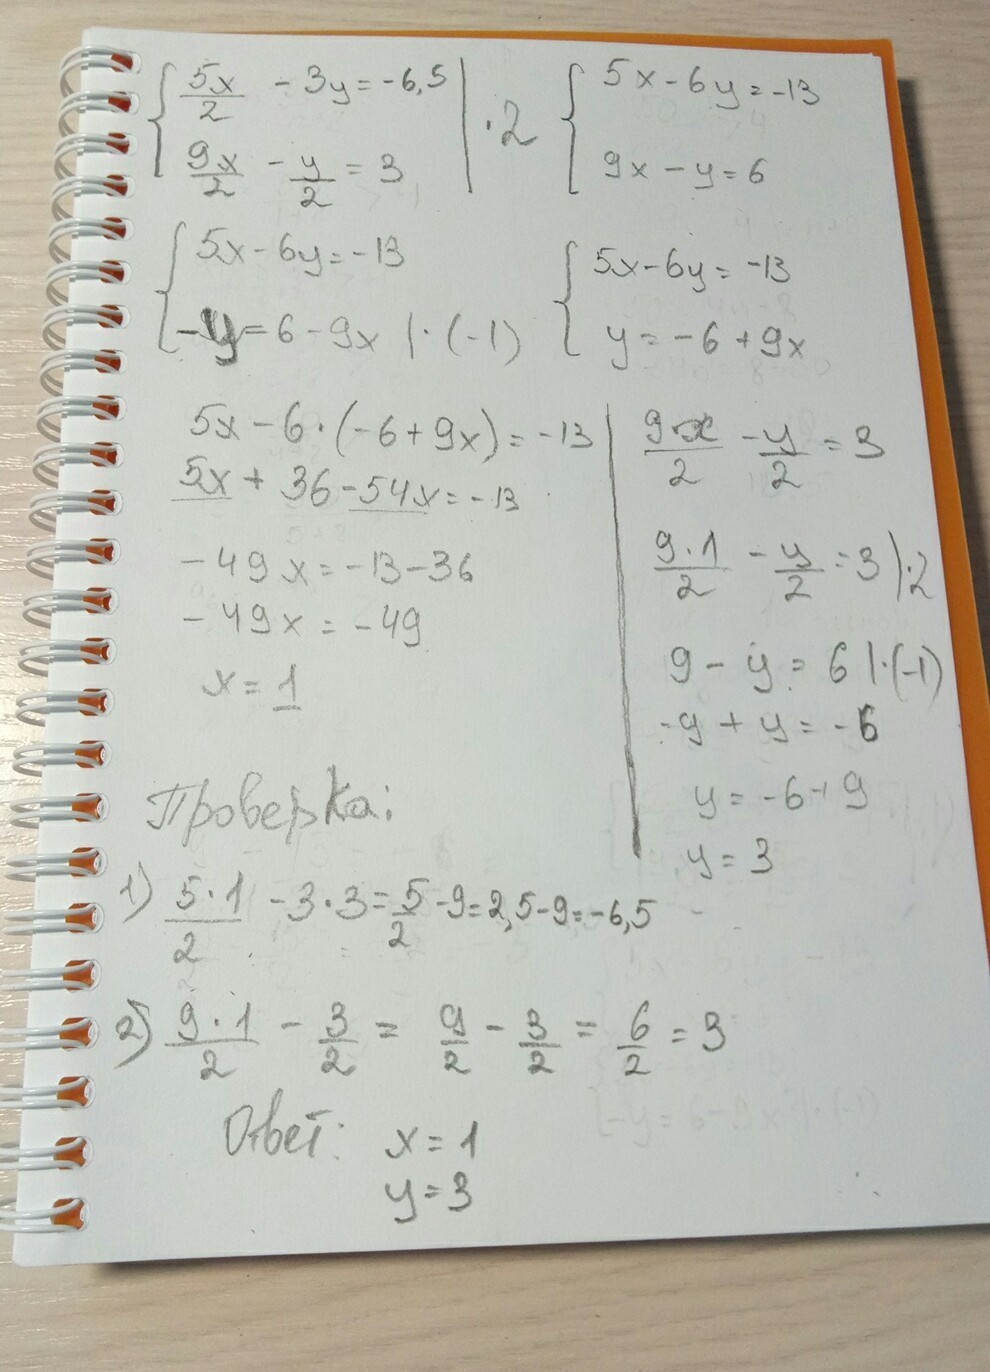 { 5x/2 - 3y = -6,5 | · 2 { 5x - 6y = -13
9x/2 - y/2 = 3 9x - y = 6
{ 5x - 6y = -13 { 5x - 6y = -13
-y = 6 - 9x | · (-1) y = -6 + 9x
5x - 6 · (-6 + 9x) = -13
5x + 36 - 54x = -13
-49x = -13 - 36
-49x = -49
x = 1
9·x/2 - y/2 = 3
9·1/2 - y/2 = 3 | · 2
9 - y = 6 | · (-1)
-9 + y = -6
y = -6 + 9
y = 3
Проверка:
1) 5·1/2 - 3·3 = 5/2 - 9 = 2,5 - 9 = -6,5
2) 9·1/2 - 3/2 = 9/2 - 3/2 = 6/2 = 3
Ответ: x = 1
y = 3